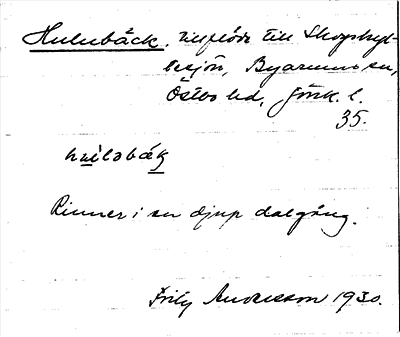 Hulubäck, tillflöde till Skogshyl-
tesjön, Byarums sn,
Östbo hd, Jönk. l.
35.
hu̲lɔbäk̲
Rinner i en djup dalgång.
Fritz Andersson 1930.